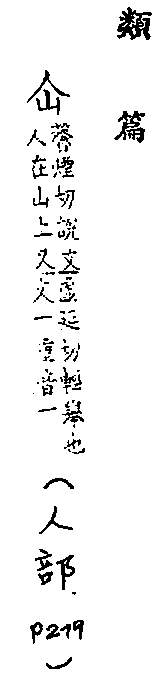 類篇
仚
馨煙切說文虛延切輕舉也
人在山上又文一重音一
（人部.
P219
）